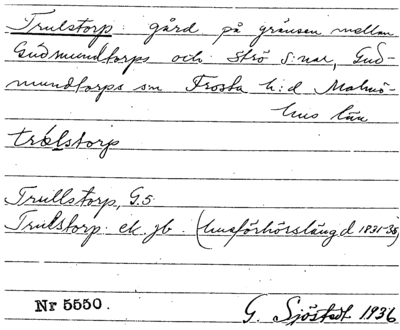 Trulstorp: gård på gränsen mellan
Gudmundtorps och Strö s:nar, Gud-
mundtorps sn Frosta h:d Malmö-
hus län
trólstorp
Trullstorp, G.S
Trulstorp ek. jb. (husförhörslängd 1831-35)
Nr 5550.
G. Sjöstedt 1936